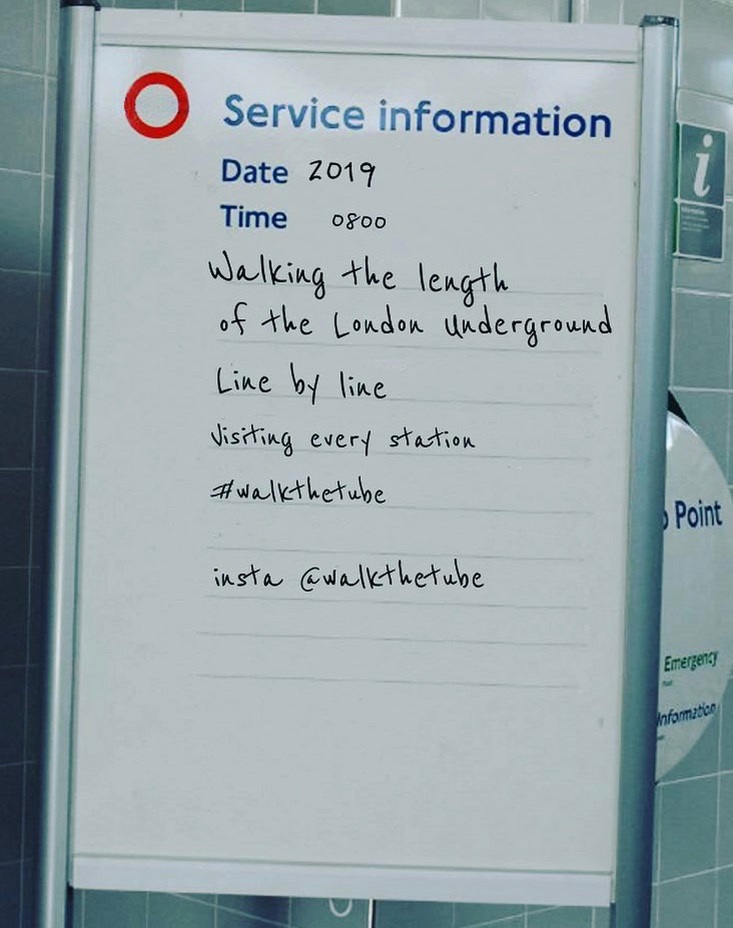 Service information
Date 2019
Time 0800
Walking the length
of the London Underground
Line by line
Visiting every station
#walkthetube
insta @walkthetube
i
Point
Emergency
Information